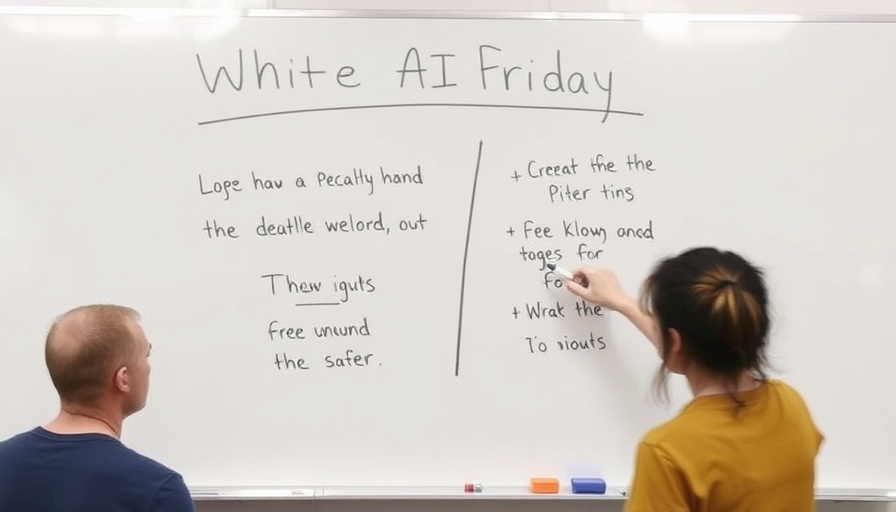 White AI Friday
Lope hav a Pecally hand
the deatlle welord, out
Thew iguts
free unund
the safer.
+ Creeat the the
Piter tins
+ Fee klowy ancd
tages for
fo
+ Wrak the
To viouts